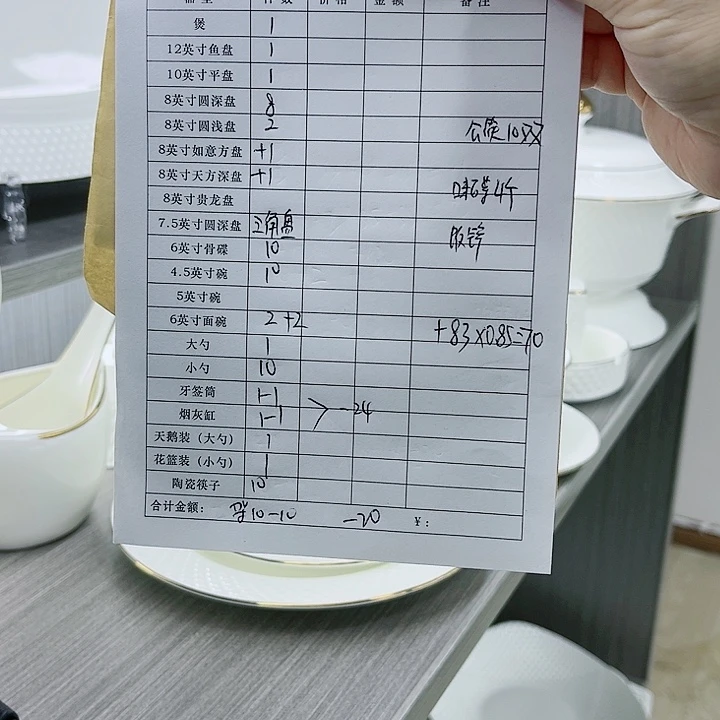 器型 件数 价格 金额 备注
煲 1
12英寸鱼盘 1
10英寸平盘 1
8英寸圆深盘 8
8英寸圆浅盘 2 公筷10双
8英寸如意方盘 +1
8英寸天方深盘 +1 4个
8英寸贵龙盘
7.5英寸圆深盘 三角盘
6英寸骨碟 10
4.5英寸碗 10
5英寸碗
6英寸面碗 2+2 +83×0.85=70
大勺 1
小勺 10
牙签筒 1-1
烟灰缸 1-1 -24
天鹅装（大勺） 1
花篮装（小勺） 1
陶瓷筷子 10
合计金额： 10-10 -20 ¥：